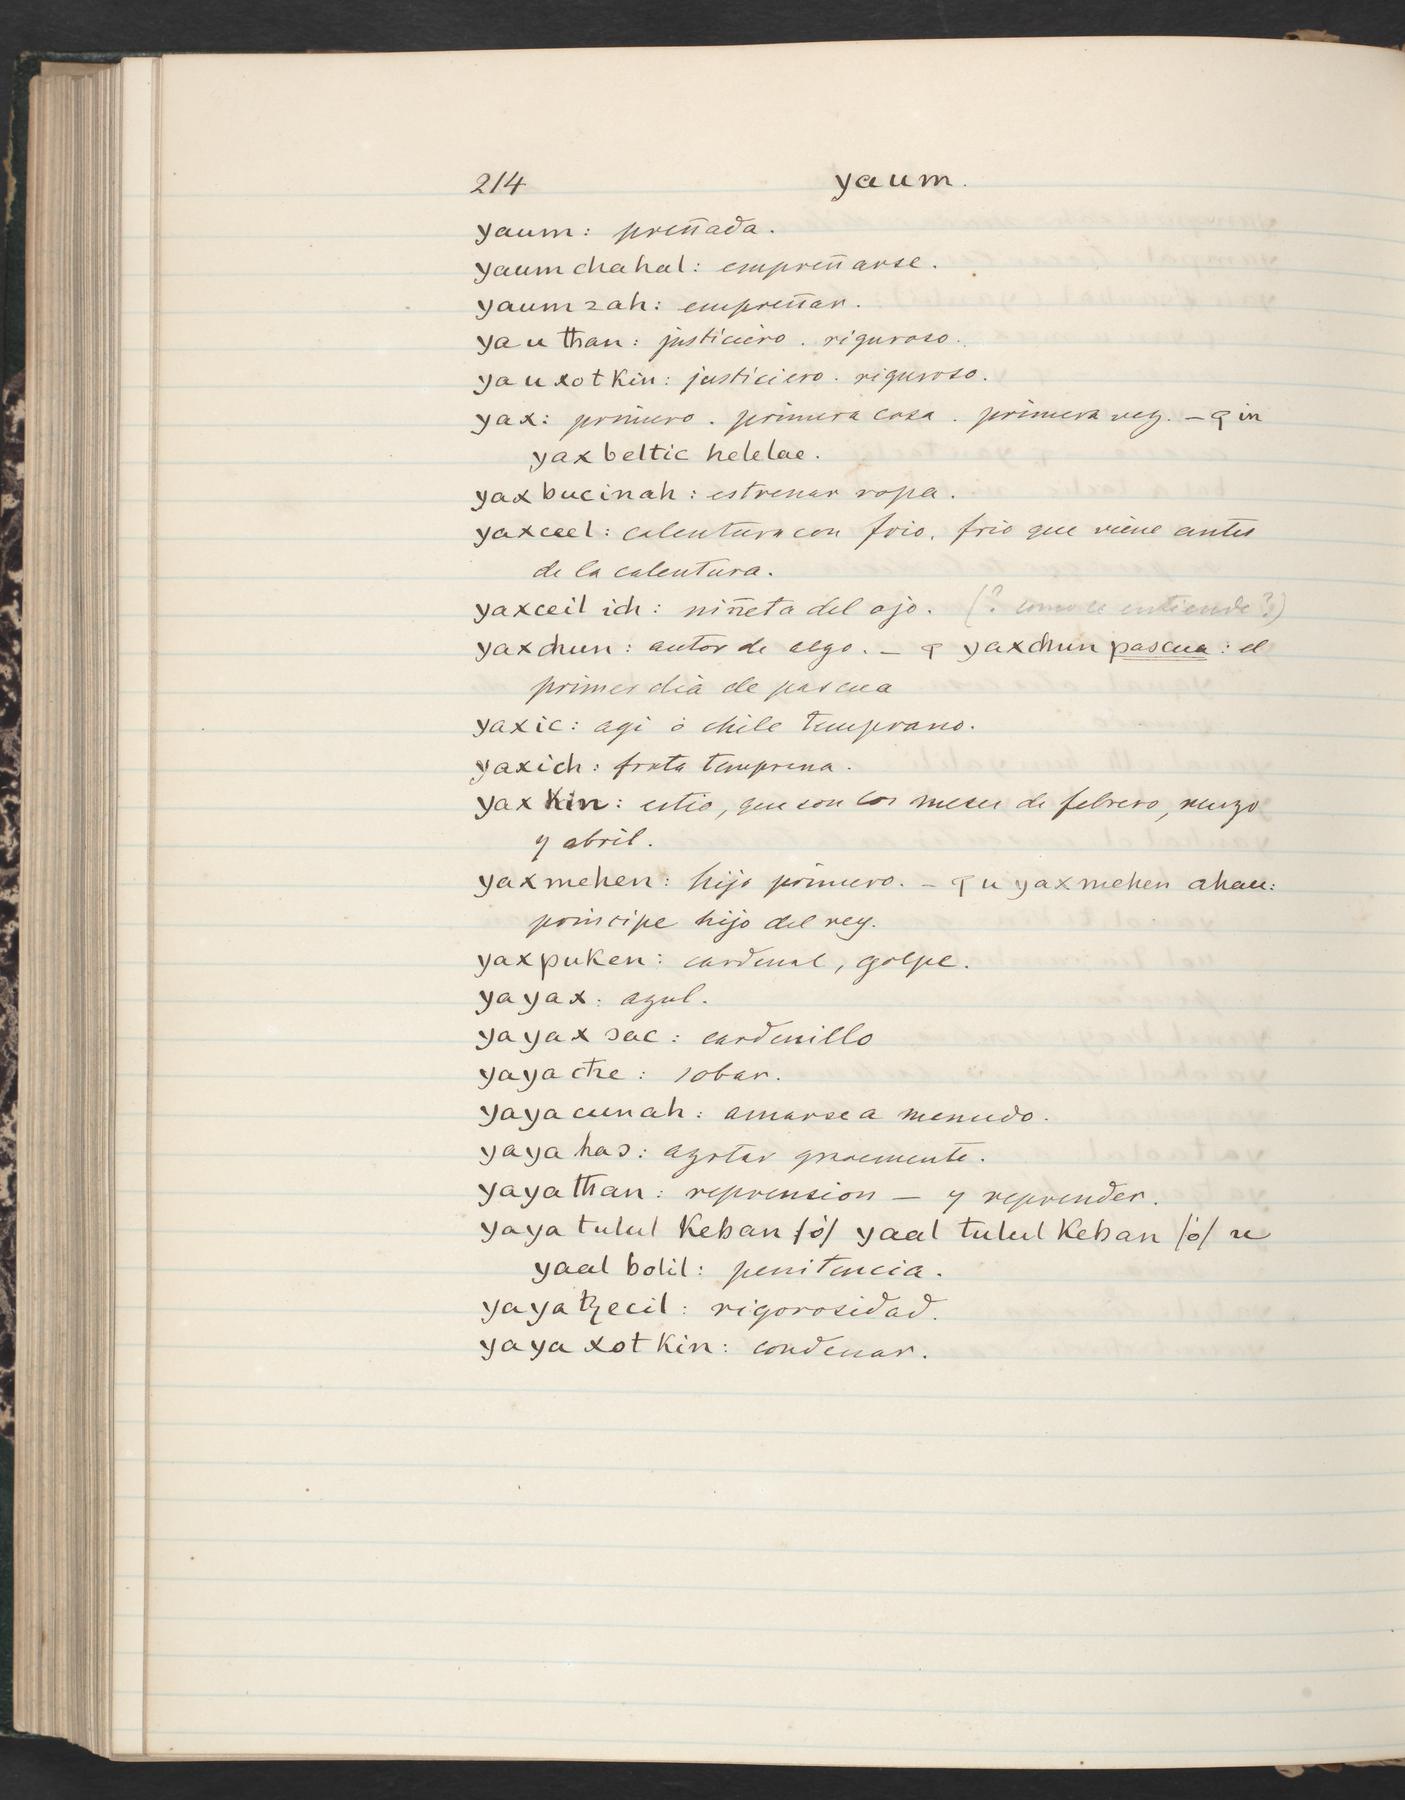 214 yaum.
yaum: preñada.
yaum chahal: empreñarse.
yaum zah: empreñar.
ya u than: justiciero. riguroso.
ya u xot kin: justiciero. riguroso.
yax: primero. primera cosa. primera vez. — ꝗ in
yax beltic helelae.
yax bucinah: estrenar ropa.
yaxceel: calentura con frio, frio que viene antes
de la calentura.
yaxceil ich: niñeta del ojo. (? como se entiende?)
yaxchun: autor de algo. — ꝗ yaxchun pascua: el
primer dia de pascua
yaxic: agi ó chile temprano.
yaxich: fruta temprana.
yax kin: estio, que son los meses de febrero, marzo
y abril.
yax mehen: hijo primero. — ꝗ u yax mehen ahau:
principe hijo del rey.
yax puken: cardenal, golpe.
yayax: azul.
yayax sac: cardenillo
yaya che: sobar.
yaya cunah: amarse a menudo.
yaya haɔ: azotar gravemente.
yaya than: reprension — y reprender.
yaya tulul keban /ó/ yaal tulul keban /ó/ u
yaal bolil: penitencia.
yaya tzecil: rigorosidad.
yaya xot kin: condenar.